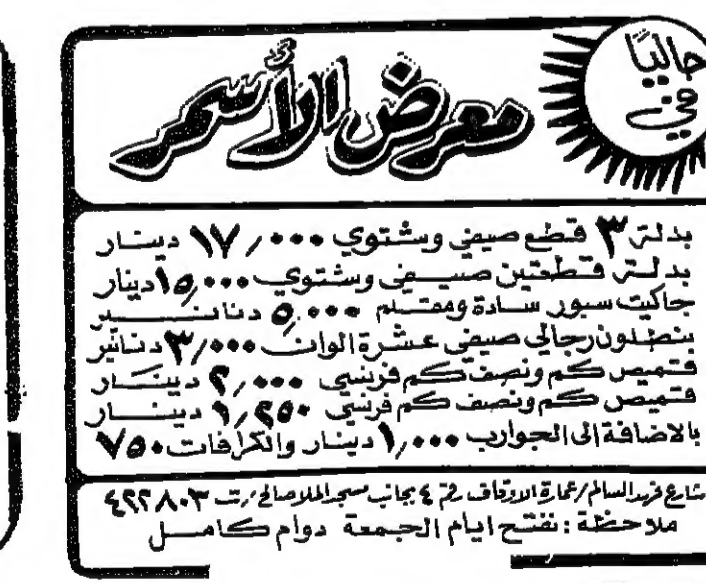 حاليًا
في
معرض الأسمر
بدلة ٣ قطع صيفي وشتوي ١٧٫٠٠٠ دينار
بدلة قطعتين صيفي وشتوي ١٥٫٠٠٠ دينار
جاكيت سبور سادة ومقلم ٥٫٠٠٠ دنانير
بنطلون رجالي صيفي عشرة الوان ٣٫٠٠٠ دنانير
قميص كم ونصف كم فرنسي ٢٫٠٠٠ دينار
قميص كم ونصف كم فرنسي ١٫٢٥٠ دينار
بالاضافة الى الجوارب ١٫٠٠٠ دينار والكرافات ٧٥٠
شارع فهد السالم / عمارة الاوقاف رقم ٤ بجانب مسجد الملا صالح / ت ٤٢٢٨٠٣
ملاحظة : نفتح ايام الجمعة دوام كامل